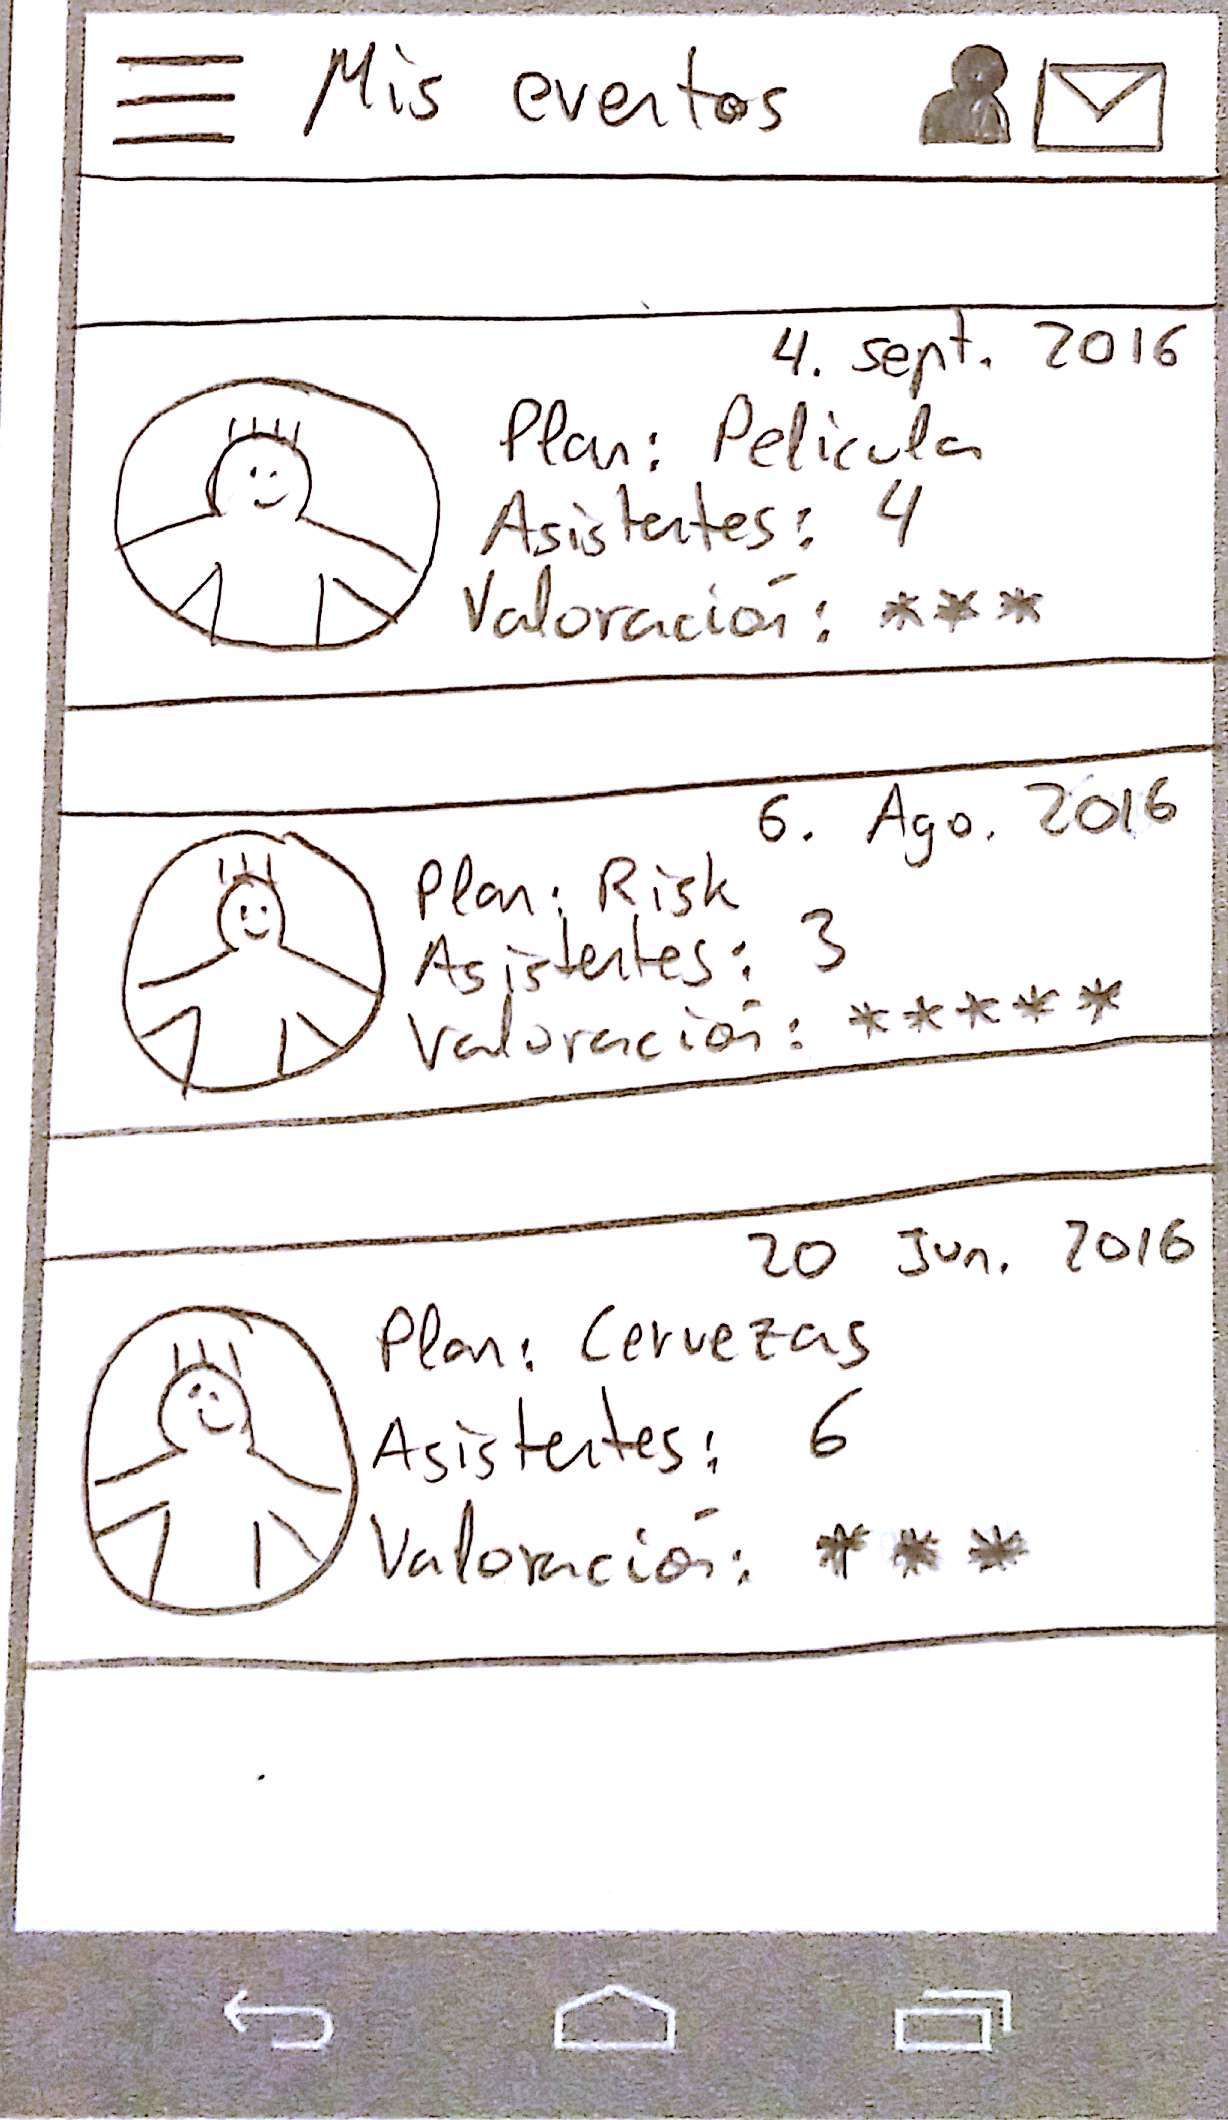 Mis eventos
4. sept. 2016
Plan: Pelicula
Asistentes: 4
Valoración: ***
6. Ago. 2016
Plan: Risk
Asistentes: 3
Valoración: *****
20 Jun. 2016
Plan: Cervezas
Asistentes: 6
Valoración: ***